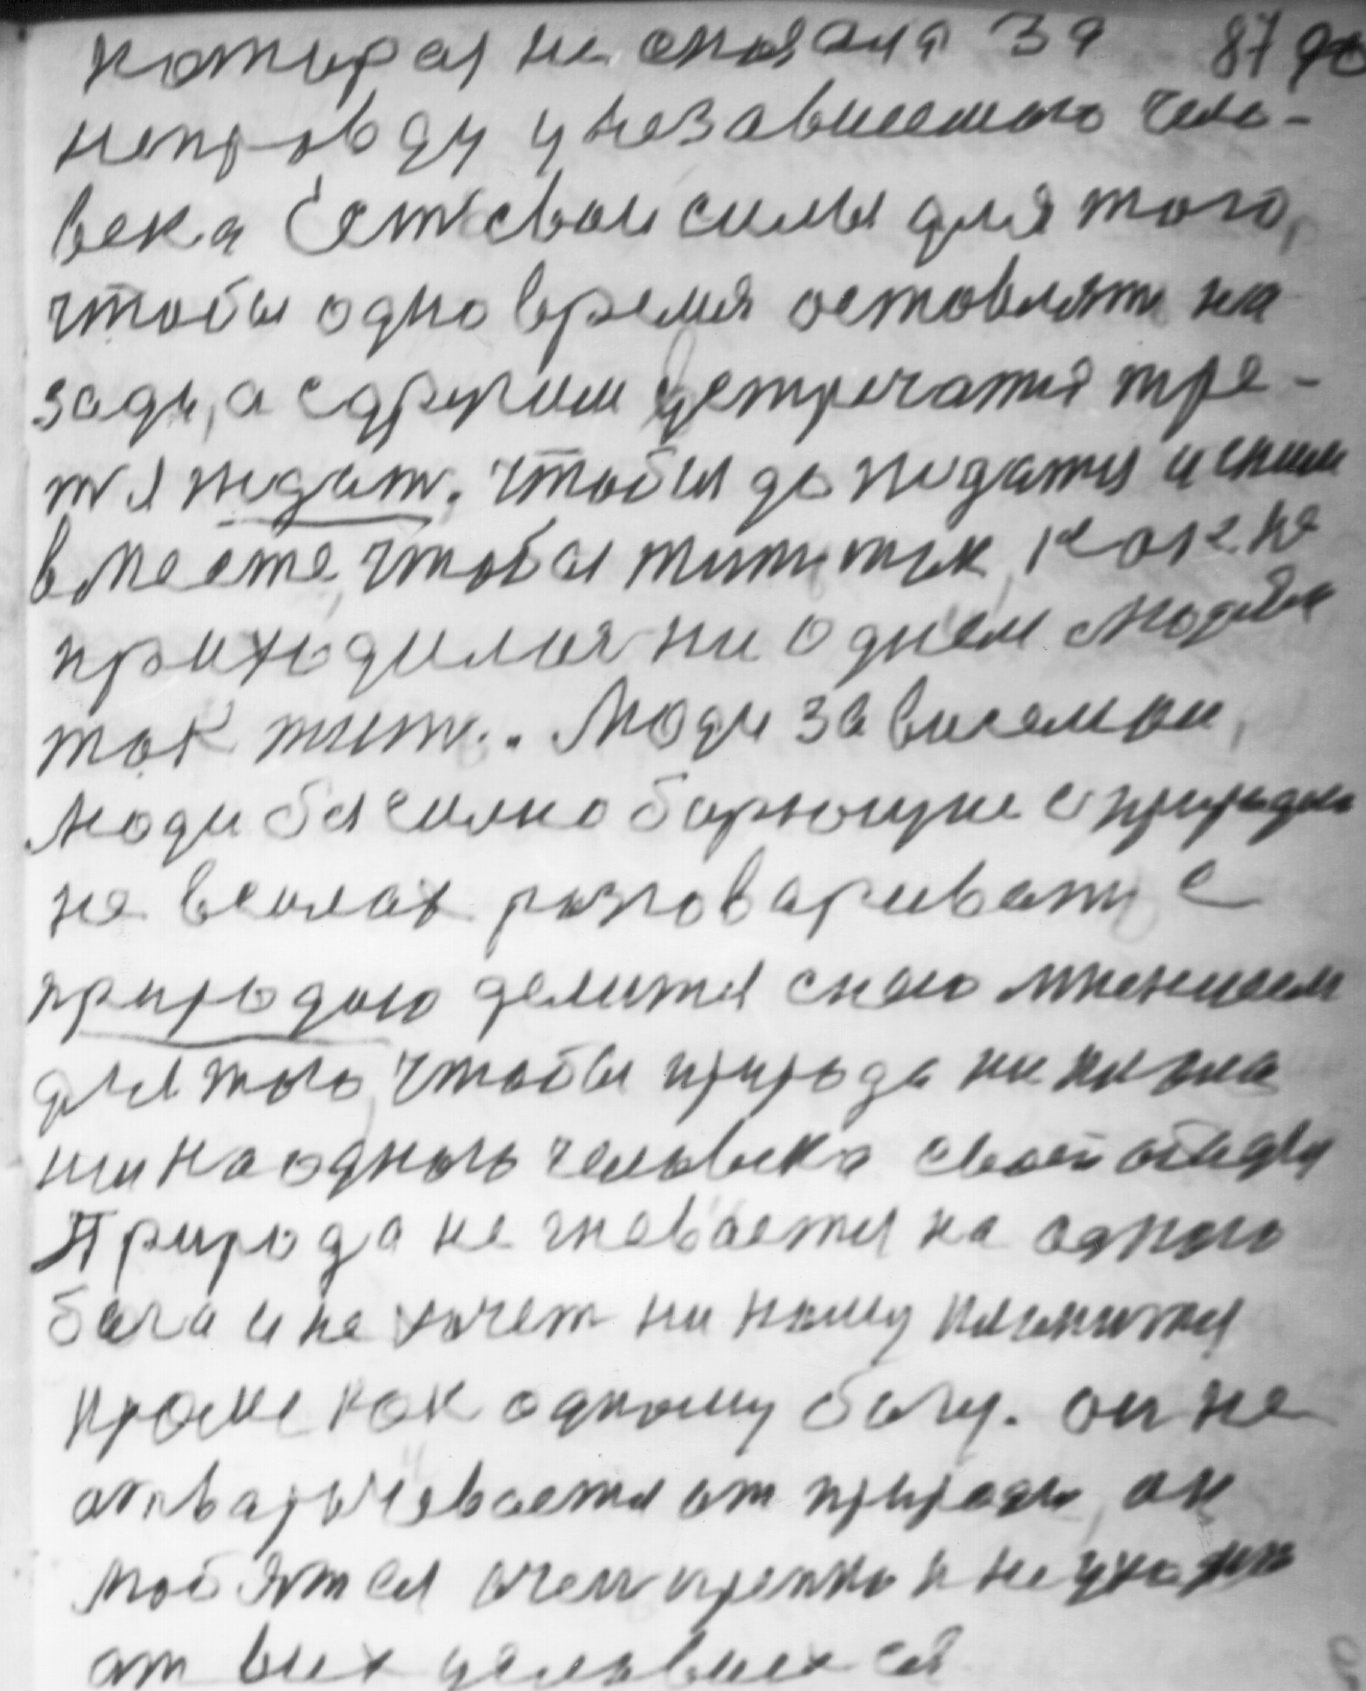 которая не стояла за 87 90
неправду у независемого чело-
века Есть свои силы для того,
чтобы одно время оставлять на
зади, а с другим встречатся тре-
тя ждать. чтобы дождатся и сним
вместе, чтобы жить так, как не
приходилося ни однем людям
так жить.. Люди зависемаи,
люди бысилно борющие с природаю
не всилах разговаривать с
природаю делится снею мнением
для того, чтобы природа ни
ни на одного человека своей обиды
Природа не гневается на одного
бога и не хочет ни кому клонится
кроме как одному богу. он не
отварычевается от природы, он
любятся очень крепко и не уходит
от всех условиех